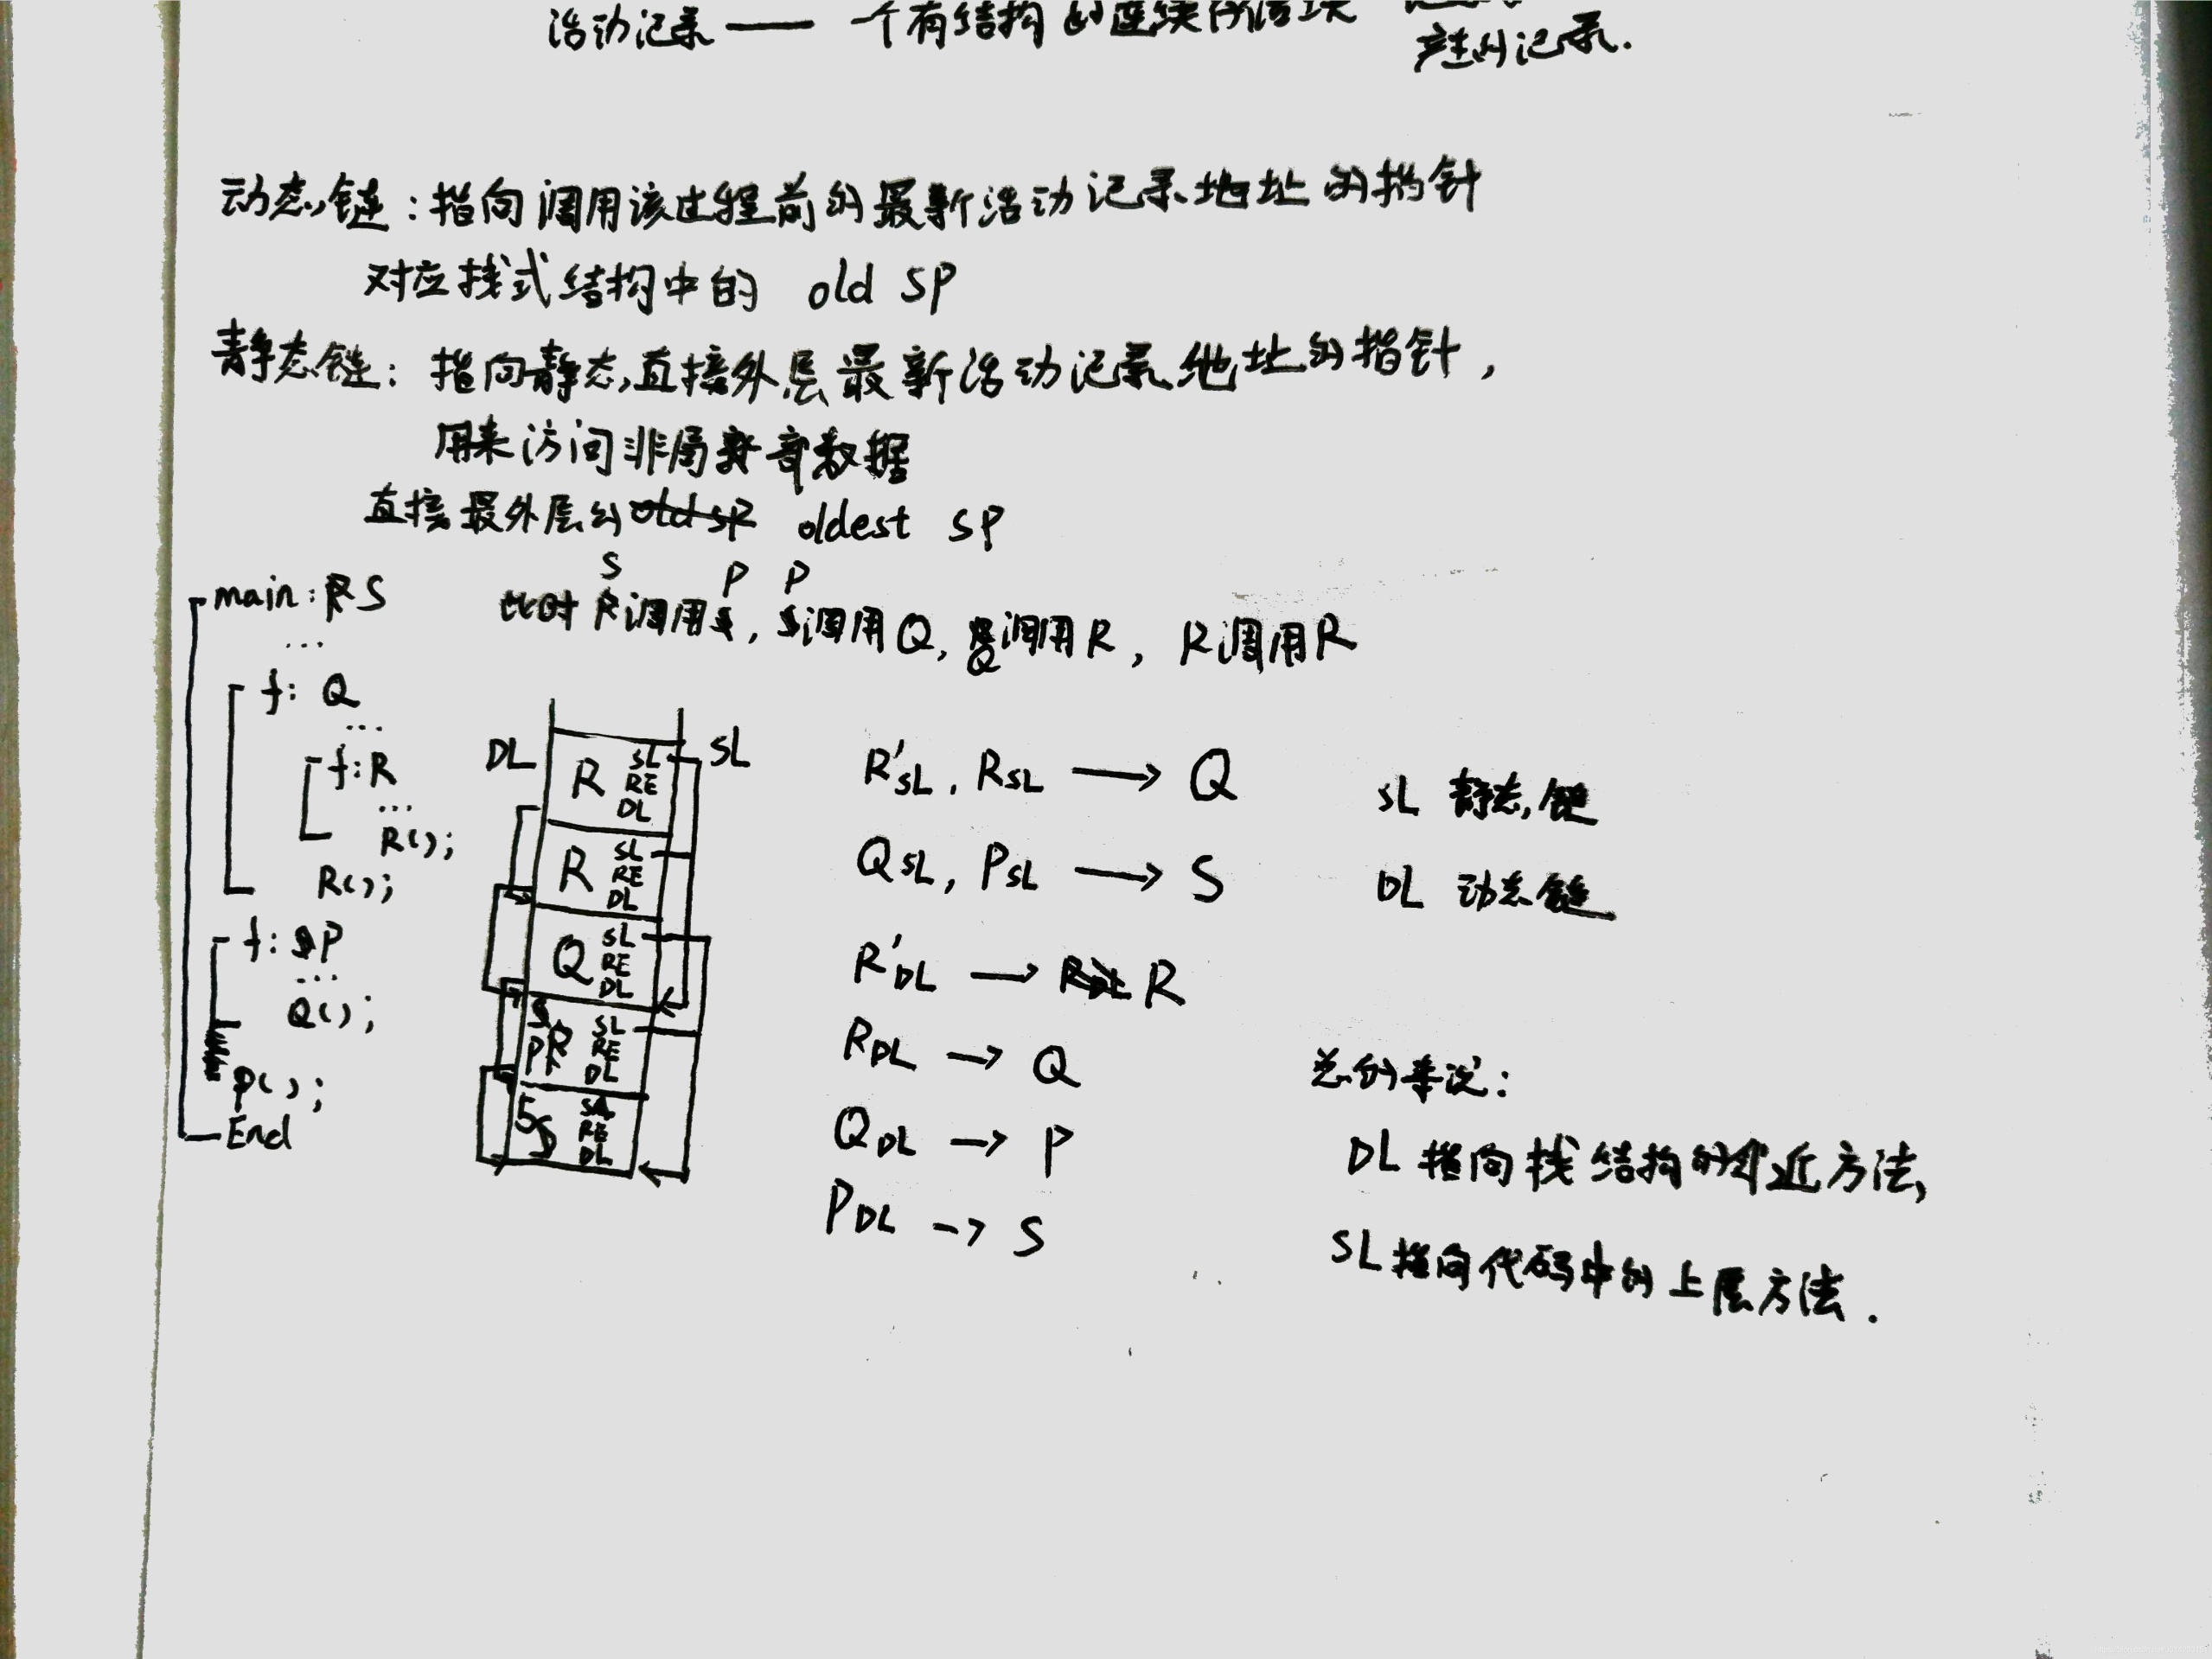 活动记录 —— 一个有结构的连续存储块
产生的记录.
动态链：指向调用该过程前的最新活动记录地址的指针
对应栈式结构中的 old SP
静态链：指向静态直接外层最新活动记录地址的指针，
用来访问非局部数据
直接最外层的 oldest SP
main: S
...
f: Q
...
f: R
...
R();
R();
f: P
...
Q();
P();
End
此时 S调用P，P调用Q，Q调用R，R调用R
DL
SL
R SL RE DL
R SL RE DL
Q SL RE DL
P SL RE DL
S SL RE DL
R'SL, RSL → Q
QSL, PSL → S
R'DL → R
RDL → Q
QDL → P
PDL → S
SL 静态链
DL 动态链
总的来说：
DL 指向栈结构的邻近方法，
SL 指向代码中的上层方法.